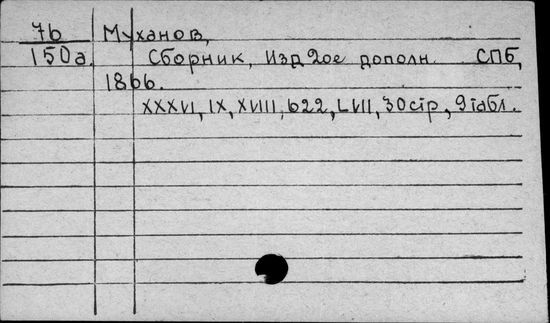 7б Муханов,
150а. Сборник, Изд 2ое дополн. СПБ,
1866.
XXXVI, IX, XVIII, 622, LVII, 30стр., 9табл.